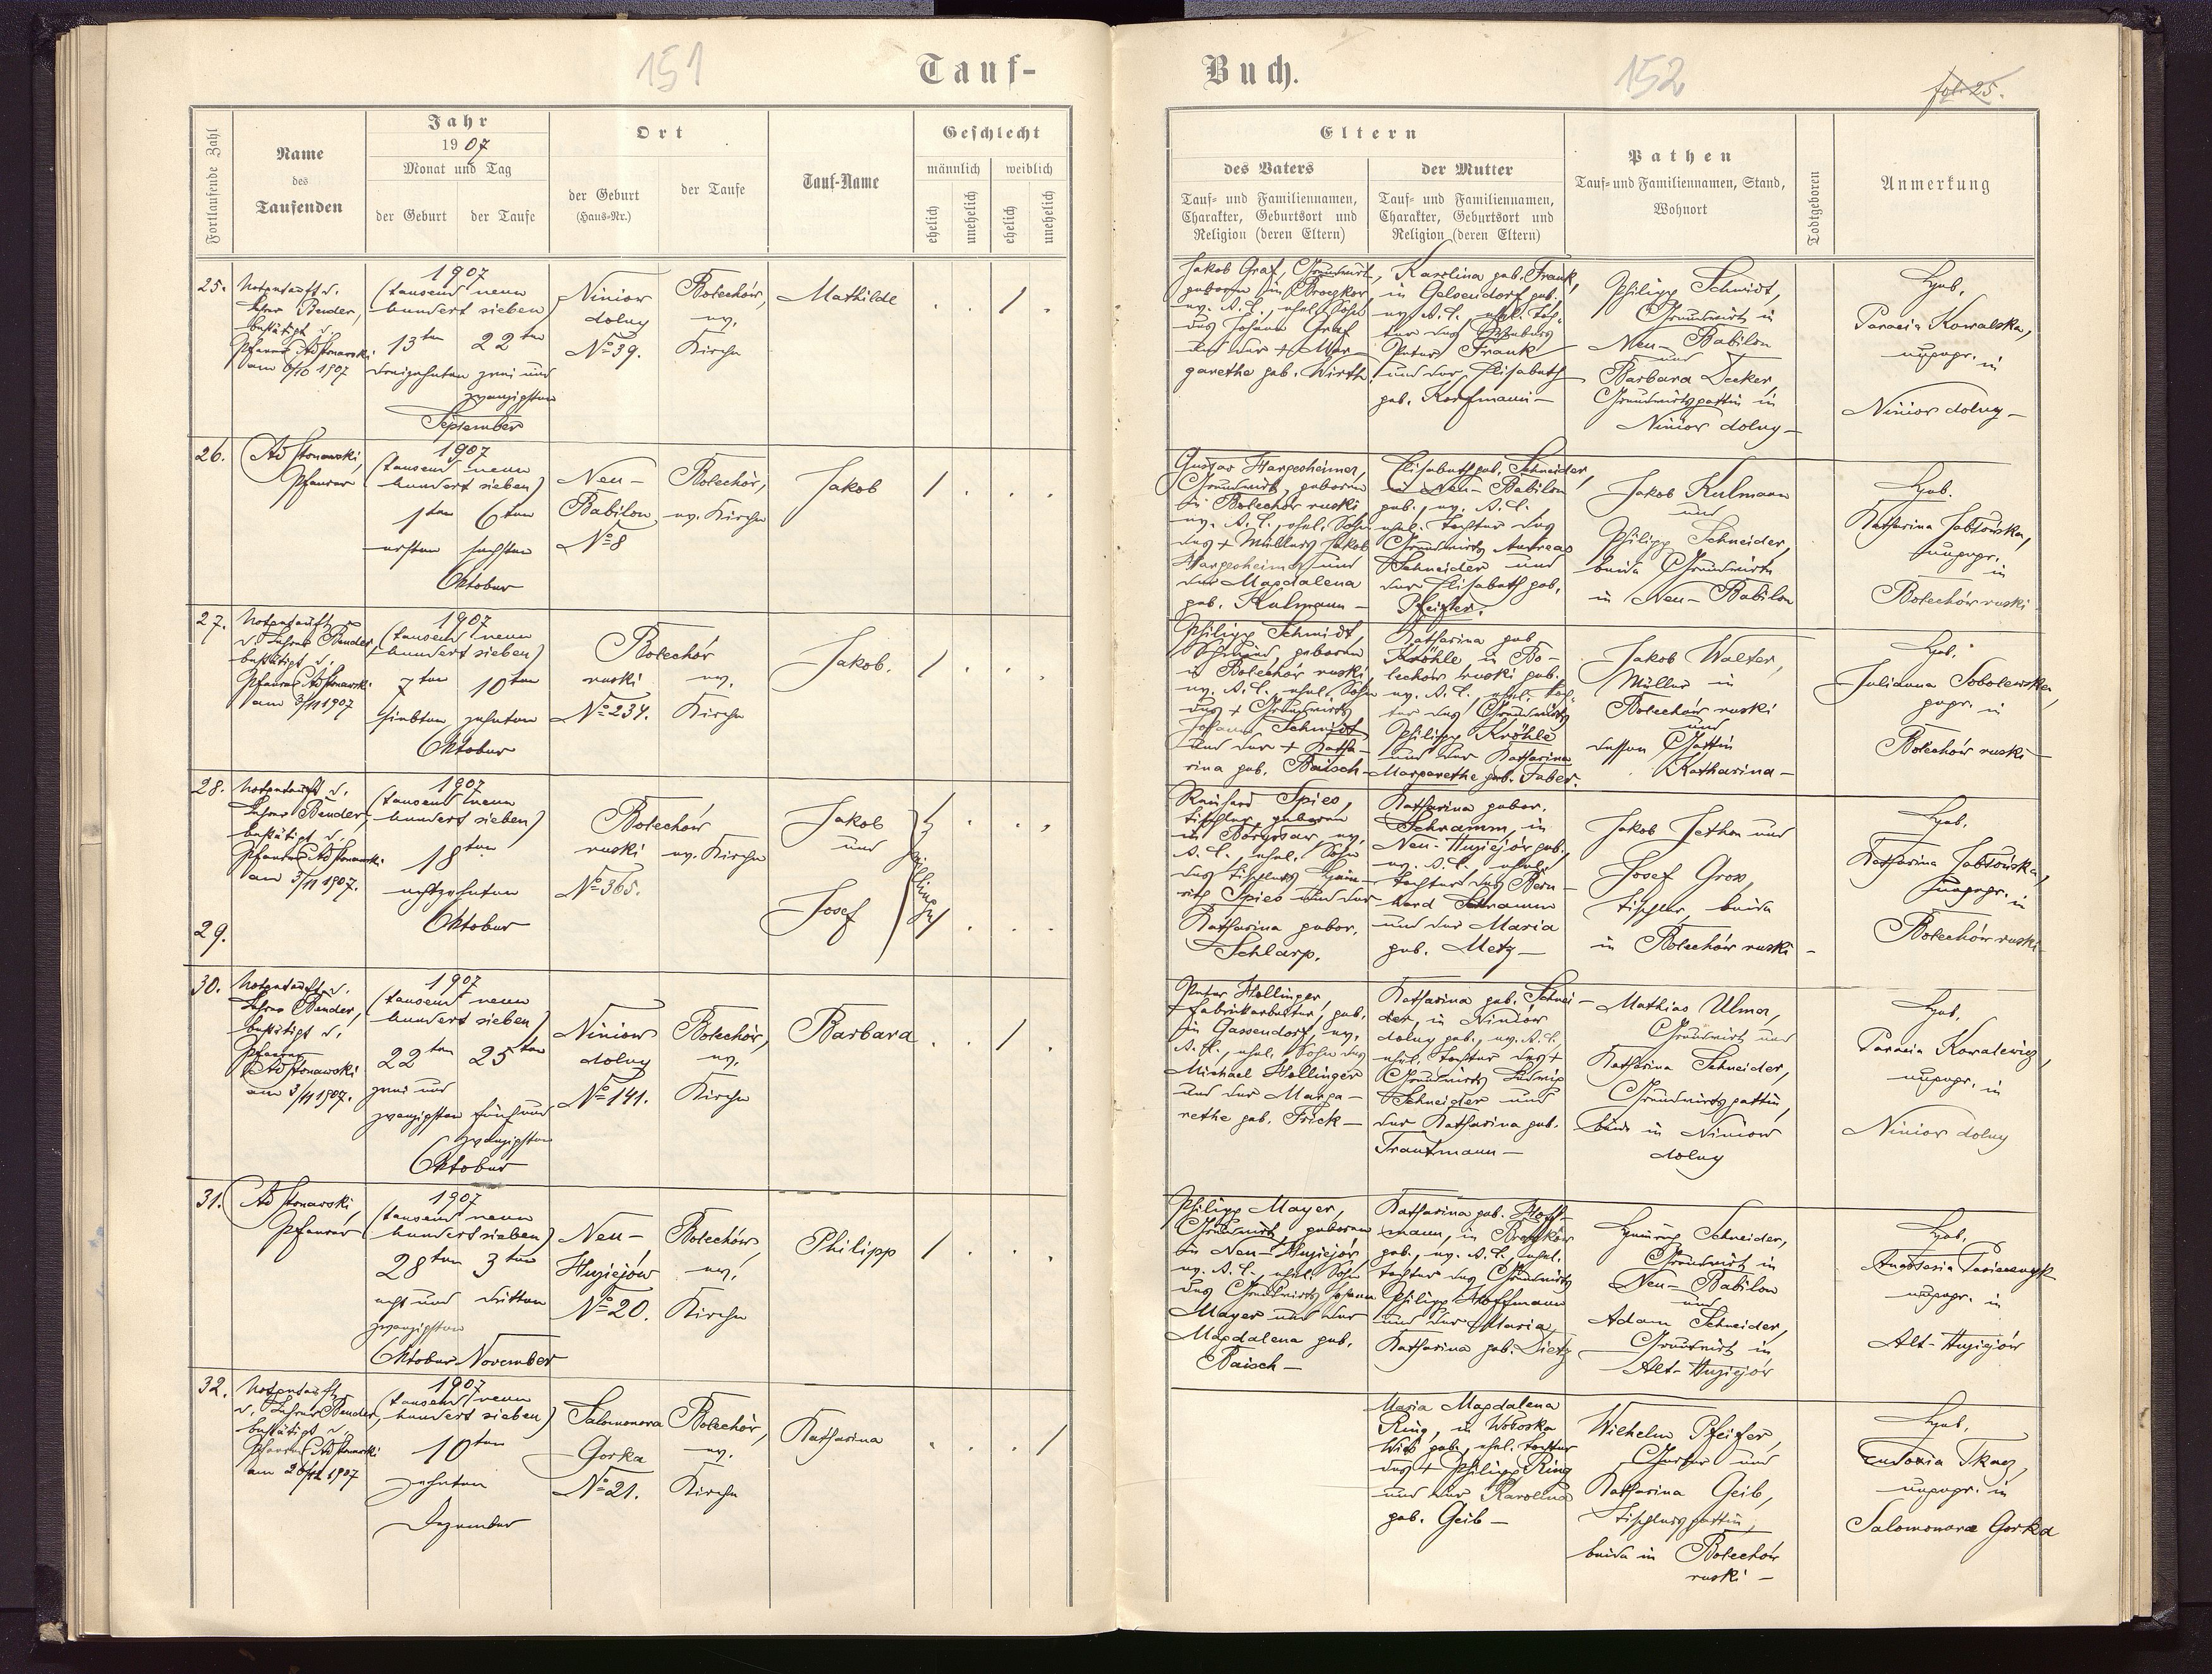 151
Tauf-
Fortlaufende Zahl
Name
des
Taufenden
Jahr
1907
Monat und Tag
der Geburt
der Taufe
Ort
der Geburt
(Haus-Nr.)
der Taufe
Tauf-Name
Geschlecht
männlich
weiblich
ehelich
unehelich
ehelich
unehelich
25.
Notgetauft d.
Lehrer Bender,
bestätigt d.
Pfarrer
am 6/10 1907
1907
(tausend neun
hundert sieben)
13ten 22ten
dreizehnten zwei und
zwanzigsten
September
Niniow
dolny
No 39.
Bolechów,
ev.
Kirche
Mathilde
. . / .
26.
Pfarrer
1907
(tausend neun
hundert sieben)
1ten 6ten
ersten sechsten
Oktober
Neu-
Babilon
No 8
Bolechów,
ev. Kirche
Jakob
/ . . .
27.
Notgetauft
d. Lehrer Bender,
bestätigt d.
Pfarrer
am 3/11 1907
1907
(tausend neun
hundert sieben)
7ten 10ten
siebten zehnten
Oktober
Bolechów
ruski
No 234.
ev.
Kirche
Jakob.
/ . . .
28.
Notgetauft d.
Lehrer Bender,
bestätigt d.
Pfarrer
am 3/11 1907.
1907
(tausend neun
hundert sieben)
18ten
achtzehnten
Oktober
Bolechów
ruski
No 365.
ev. Kirche
Jakob
und
Zwillinge
/ . . .
29.
Josef
/ . . .
30.
Notgetauft d.
Lehrer Bender,
bestätigt d.
Pfarrer
am 3/11 1907.
1907
(tausend neun
hundert sieben)
22ten 25ten
zwei und
zwanzigsten fünf und
zwanzigsten
Oktober
Niniow
dolny
No 141.
Bolechów,
ev.
Kirche
Barbara
. . / .
31.
Pfarrer
1907
(tausend neun
hundert sieben)
28ten 3ten
acht und dritten
zwanzigsten
Oktober November
Neu-
Huziejów
No 20.
Bolechów,
ev.
Kirche
Philipp
/ . . .
32.
Notgetauft
d. Lehrer Bender,
bestätigt d.
Pfarrer
am 26/12 1907
1907
(tausend neun
hundert sieben)
10ten
zehnten
Dezember
Salomonowa
Gorka
No 21.
Bolechów,
ev.
Kirche
Katharina
. . . /
Buch.
152
fol. 25.
Eltern
des Vaters
Tauf- und Familiennamen,
Charakter, Geburtsort und
Religion (deren Eltern)
der Mutter
Tauf- und Familiennamen,
Charakter, Geburtsort und
Religion (deren Eltern)
Pathen
Tauf- und Familiennamen, Stand,
Wohnort
Todtgeboren
Anmerkung
Jakob Graf, Grundwirt,
geboren in Broczkow,
ev. A. C., ehel. Sohn
des Johann Graf
und der + Mar-
garethe geb. Wirth
Karolina geb. Frank,
in Gelsendorf geb.,
ev. A. C., ehel. Toch-
ter des
Peter Frank
und der Elisabeth
geb. Korfmann -
Philipp Schmidt,
Grundwirt in
Neu-Babilon
und
Barbara Decker,
Grundwirtsgattin in
Niniow dolny -
Heb.
Paracia Kowalska,
ungepr. in
Niniow dolny -
Gustav Hargesheimer,
Grundwirt, geboren
in Bolechów ruski
ev. A. C., ehel. Sohn
des + Müllers Jakob
Hargesheimer und
der Magdalena
geb. Kulmann -
Elisabeth geb. Schneider,
in Neu-Babilon
geb., ev. A. C.
ehel. Tochter des
Grundwirts Andreas
Schneider und
der Elisabeth geb.
Pfeifer.
Jakob Kulmann
und
Philipp Schneider,
beide Grundwirte
in Neu-Babilon
Heb.
Katharina Jabłońska,
ungepr.
in
Bolechów ruski
Philipp Schmidt,
Schmied, geboren
in Bolechów ruski,
ev. A. C., ehel. Sohn
des + Grundwirts
Johann Schmidt
und der + Katha-
rina geb. Baisch -
Katharina geb.
Kröhle in Bo-
lechów ruski geb.
ev. A. C., ehel. Toch-
ter des Grundwirts
Philipp Kröhle
und der Katharina
Margarethe geb. Faber.
Jakob Walter,
Müller in
Bolechów ruski
und
dessen Gattin
Katharina -
Heb.
Julianna Sobolewska,
gepr. in
Bolechów ruski -
Reinhard Spies,
Tischler, geboren
in Borysław, ev.
A. C., ehel. Sohn
des Tischlers Hein-
rich Spies und der
Katharina gebor.
Schlarp.
Katharina gebor.
Schramm, in
Neu-Huziejów geb.,
ev. A. C., ehel.
Tochter des Bern-
hard Schramm
und der Maria
geb. Metz -
Jakob Jethon und
Josef Gross,
Tischler, beide
in Bolechów ruski -
Heb.
Katharina Jabłońska,
ungepr. in
Bolechów ruski -
Peter Hollinger,
Fabrikarbeiter, geb.
in Gassendorf, ev.
A. C., ehel. Sohn des
Michael Hollinger
und der Marga-
rethe geb. Frick -
Katharina geb. Schnei-
der, in Niniow
dolny geb., ev. A. C.,
ehel. Tochter des +
Grundwirts Ludwig
Schneider und
der Katharina geb.
Trautmann -
Mathias Ulmer,
Grundwirt und
Katharina Schneider,
Grundwirtsgattin,
beide in Niniow
dolny
Heb.
Paracia Kowalewicz,
ungepr. in
Niniow dolny
Philipp Mayer,
Grundwirt, geboren
in Neu-Huziejów
ev. A. C., ehel. Sohn
des Grundwirts Johann
Mayer und der
Magdalena geb.
Baisch -
Katharina geb. Hoff-
mann, in Broczków
geb., ev. A. C., ehel.
Tochter des Grundwirts
Philipp Hoffmann
und der + Maria
Katharina geb. Dietz
Schneider,
Grundwirt in
Neu-Babilon
und
Adam Schneider,
Grundwirt in
Alt-Huziejów
Heb.
Anastasia
ungepr. in
Alt-Huziejów
Maria Magdalena
Ring, in Wołoska
Wieś geb., ehel. Tochter
des + Philipp Ring
und der Karolina
geb. Geib -
Wilhelm Pfeifer,
und
Katharina Geib,
Tischlersgattin,
beide in Bolechów
ruski -
Heb.
Eudoxia Tkacz,
ungepr. in
Salomonowa Gorka